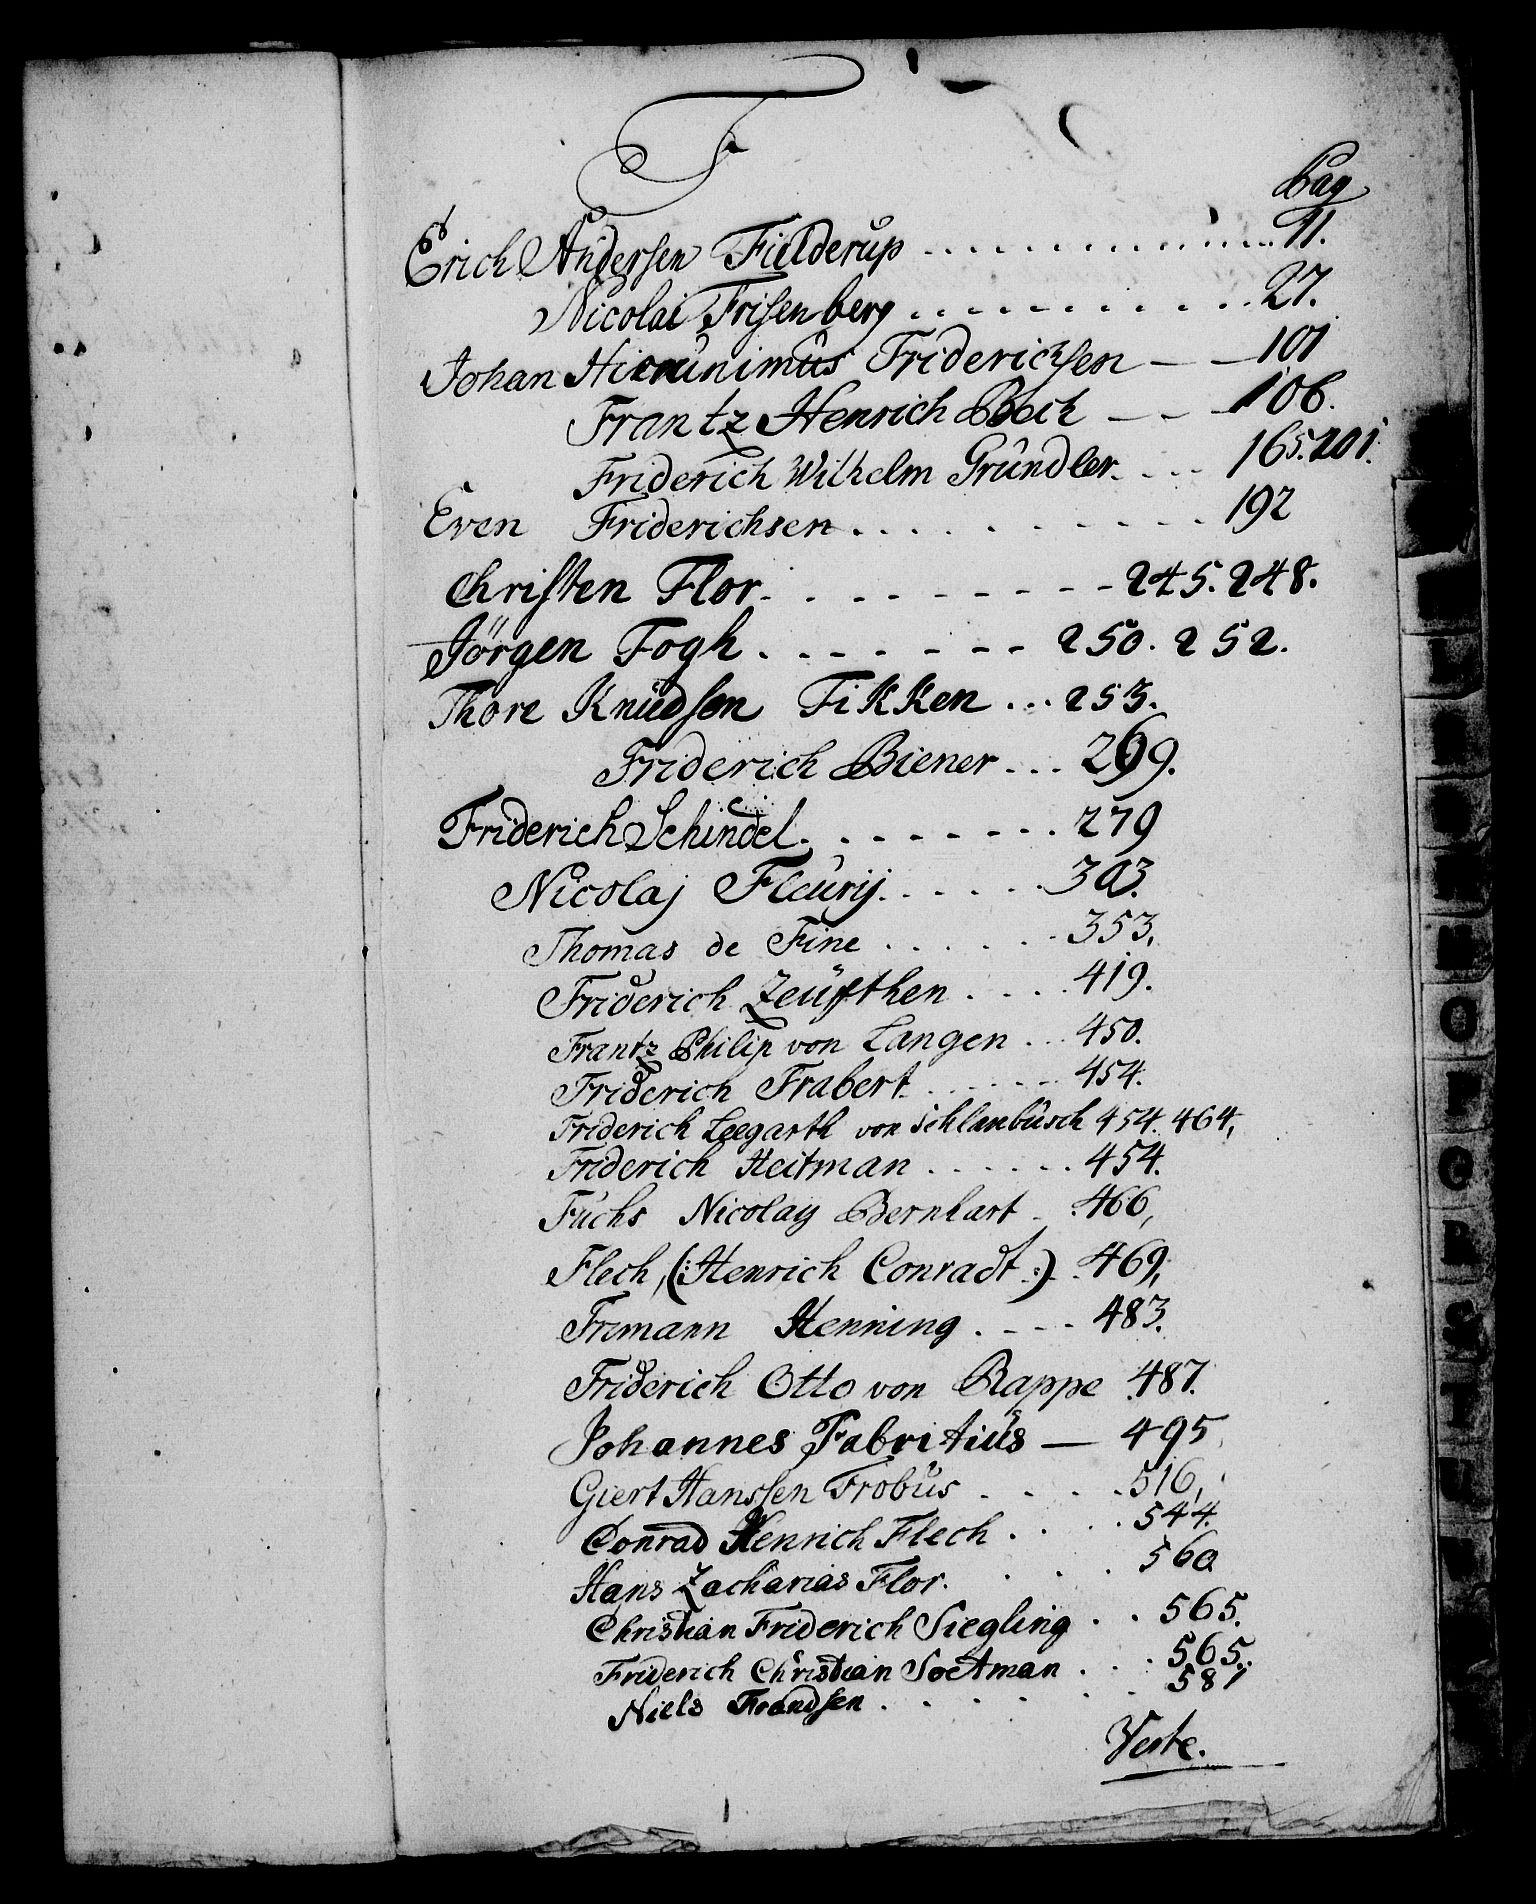 F
Pag
Erich Andersen Fielderup . . . . . . . . . . . . . . 11.
Nicolai Frisenberg . . . . . . . . . . . 27.
Johan Hierunimus Friderichsen — — 101
Frantz Henrich Beck — — — 106.
Friderich Wilhelm Gründler. . . . 165. 201.
Even Friderichsen . . . . . . . . . . 192
Christen Flor . . . . . . . . . 245. 248.
Jörgen Fogh . . . . . . . 250. 252.
Thore Knudsen Fikken . . . 253.
Friderich Biener . . . 269.
Friderich Schindel . . . . . . . . 279
Nicolaj Fleürij . . . . . . 303.
Thomas de Fine . . . . . . 353,
Friderich Zeüfthen . . . . 419.
Frantz Philip von Langen . . . 450.
Friderich Frabert . . . . . . 454.
Friderich Leegarth von Schlanbusch 454. 464,
Friderich Heitman . . . . . . 454.
Fuchs Nicolay Bernhart . . 466,
Flech, (: Henrich Conradt :) . . 469,
Frimann Henning . . . . 483.
Friderich Otto von Rappe 487.
Johannes Fabritius — 495
Giert Hanssen Frobus . . . . . 516,
Conrad Henrich Flech . . . . 544.
Hans Zacharias Flor . . . . . 560
Christian Friderich Siegling . . 565.
Friderich Christian Soetman . . . 565.
Niels Frandsen . . . . . . . 581
Verte.
L
N
O
P
Q
R
S
T